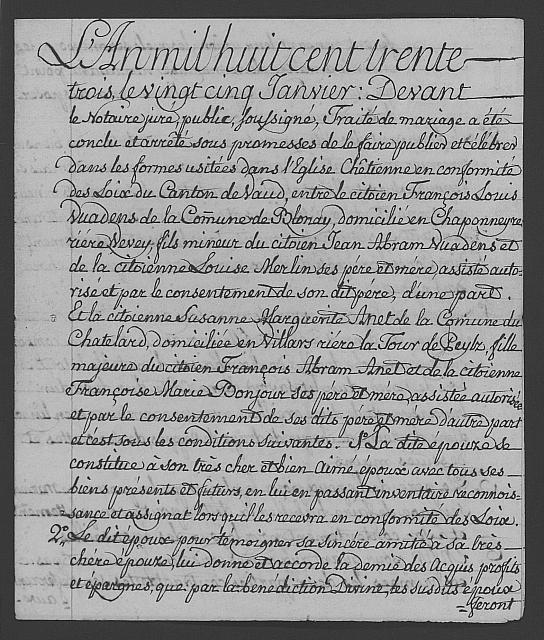 L'An mil huit cent trente
trois, le vingt cinq Janvier: Devant
le Notaire juré public, soussigné, Traité de mariage a été
conclu et arrêté sous promesses de le faire publier et célébrer
dans les formes usitées dans l'Eglise Chétienne en conformité
des Loix du Canton de Vaud, entre le citoien François Louis
Vuadens de la Comune de Blonay, domicilié en Chaponneyre
riére Vevey, fils mineur du citoien Jean Abram Vuadens et
de la citoienne Louise Merlin ses pére et mére, assisté auto-
risé et par le consentement de son dit pére, d'une part.
Et la citoienne Susanne Marguerite Anet de la Comune du
Chatelard, domiciliée en Villars riere la Tour de Peylz, fille
majeure du citoien François Abram Anet et de la citoienne
Françoise Marie Bonjour ses pére et mére, assistée autorisée
et par le consentement de ses dits pére et mére d'autre part
et c'est sous les conditions suivantes. 1º La dite épouze se
constitue à son très cher et bien aimé époux avec tous ses
biens présents et futurs, en lui en passant inventaire reconnois-
sance et assignat lors qu'il les recevra en conformité des Loix.
2º Le dit époux pour témoigner sa sincére amitié à sa très
chére épouze, lui donne et accorde la demie des Acquis profits
et épargnes, que par la bénédiction Divine, les susdits époux
=feront